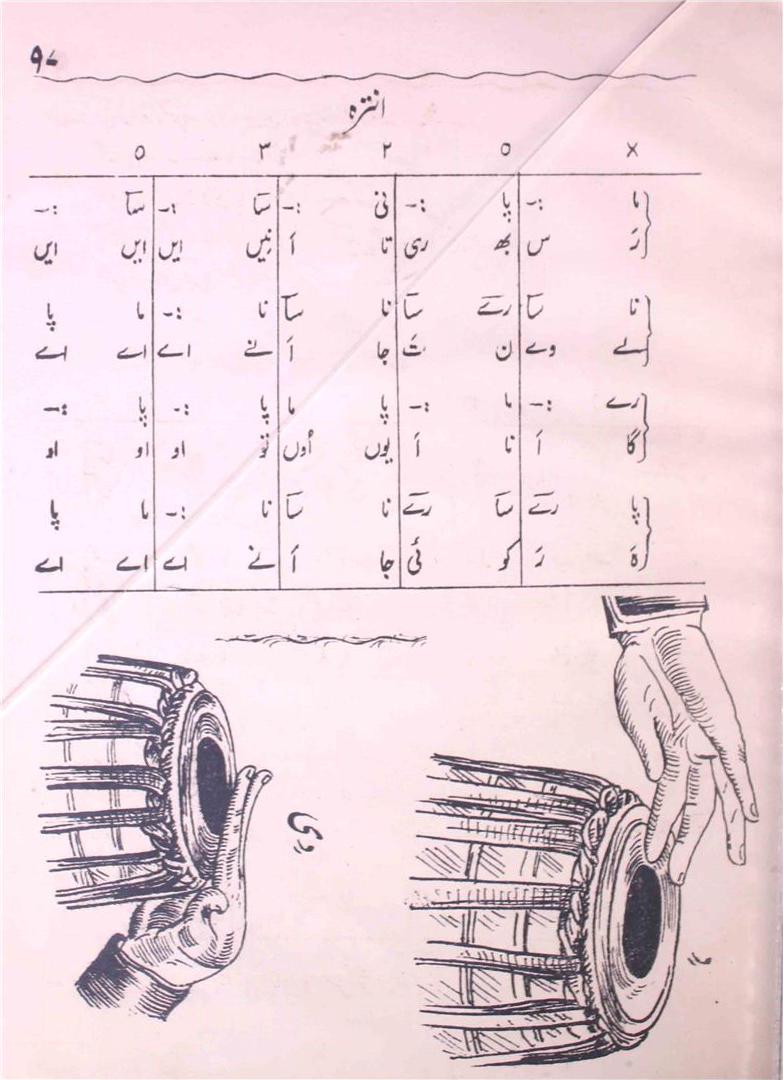 ۹۷
انترہ
× ٥ ۲ ۳ ٥
ما :- پا :- نی :- سآ :- سآ :-
رَ س بھ ری تا اَ نیں ایں ایں ایں
نا سآ رےٓ سآ نا سآ نا :- ما پا
لے وے ن تَ جا اَ نے اے اے اے
رے :- ما :- پا ما پا :- پا :-
گا اَ نا اَ یوں اُوں تو او او او
پا رےٓ سآ رےٓ نا سآ نا :- ما پا
ہَ رَ کو ئی جا اَ نے اے اے اے
دی